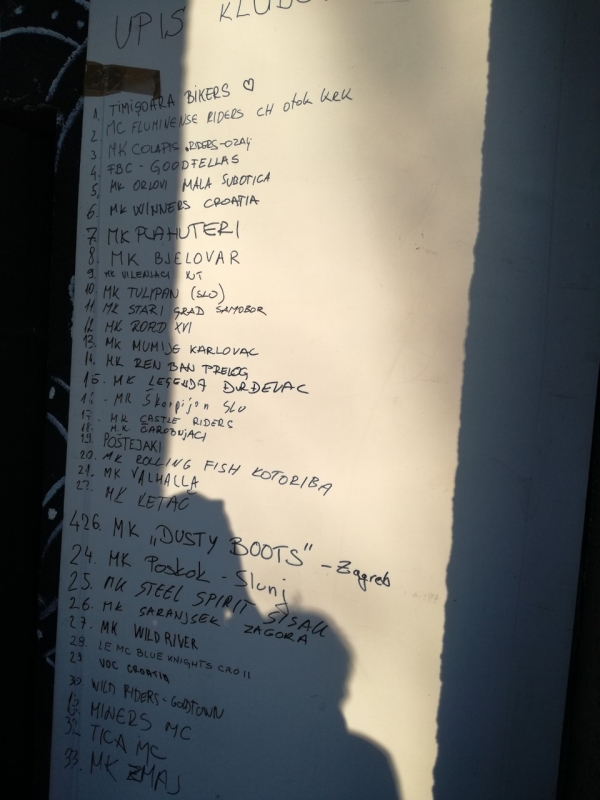 UPIS KLUBOVA
1. TIMIȘOARA BIKERS ♡
2 MC FLUMINENSE RIDERS CH otok KRK
3 MK COLAPIS RIDERS-OZALJ
4. FBC - GOODFELLAS
5. MK ORLOVI MALA SUBOTICA
6. MK WINNERS CROATIA
7. MK PLAHUTERI
8. MK BJELOVAR
9. MK VILENJACI KUT
10. MK TULIPAN (SLO)
11. MK STARI GRAD SAMOBOR
12. MK RORD XVI
13. MK MUMIJE KARLOVAC
14. MK REN BAN PRELOG
15. MK LEGENDA ĐURĐEVAC
16. - MK Škorpijon SLO
17. MK CASTLE RIDERS
18. M.K. ČAROBNJACI
19. POŠTEJAKI
20. MK ROLLING FISH KOTORIBA
21. MK VALHALLA
22. MK LETAČ
426. MK „DUSTY BOOTS" - Zagreb
24. MK Poskok - Slunj
25. MK STEEL SPIRIT SISAK
26. MK SARANJSEK ZAGORA
27. MK WILD RIVER
28. LE MC BLUE KNIGHTS CRO II
29 VOC CROATIA
30 WILD RIDERS - GOLDTOWN
MINERS MC
32. TICA MC
33. MK ZMAJ